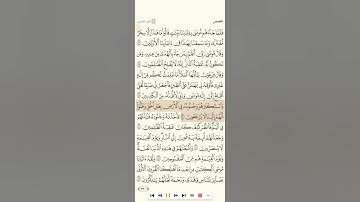 القصص
فَلَمَّا جَاءَهُم مُّوسَىٰ بِآيَاتِنَا بَيِّنَاتٍ قَالُوا مَا هَٰذَا إِلَّا سِحْرٌ
مُّفْتَرًى وَمَا سَمِعْنَا بِهَٰذَا فِي آبَائِنَا الْأَوَّلِينَ ۝
وَقَالَ مُوسَىٰ رَبِّي أَعْلَمُ بِمَن جَاءَ بِالْهُدَىٰ مِنْ عِندِهِ وَمَن
تَكُونُ لَهُ عَاقِبَةُ الدَّارِ إِنَّهُ لَا يُفْلِحُ الظَّالِمُونَ ۝
وَقَالَ فِرْعَوْنُ يَا أَيُّهَا الْمَلَأُ مَا عَلِمْتُ لَكُم مِّنْ إِلَٰهٍ
غَيْرِي فَأَوْقِدْ لِي يَا هَامَانُ عَلَى الطِّينِ فَاجْعَل لِّي صَرْحًا لَّعَلِّي
أَطَّلِعُ إِلَىٰ إِلَٰهِ مُوسَىٰ وَإِنِّي لَأَظُنُّهُ مِنَ الْكَاذِبِينَ ۝
وَاسْتَكْبَرَ هُوَ وَجُنُودُهُ فِي الْأَرْضِ بِغَيْرِ الْحَقِّ وَظَنُّوا
أَنَّهُمْ إِلَيْنَا لَا يُرْجَعُونَ ۝ فَأَخَذْنَاهُ وَجُنُودَهُ فَنَبَذْنَاهُمْ
فِي الْيَمِّ فَانظُرْ كَيْفَ كَانَ عَاقِبَةُ الظَّالِمِينَ ۝
وَجَعَلْنَاهُمْ أَئِمَّةً يَدْعُونَ إِلَى النَّارِ وَيَوْمَ الْقِيَامَةِ
لَا يُنصَرُونَ ۝ وَأَتْبَعْنَاهُمْ فِي هَٰذِهِ الدُّنْيَا لَعْنَةً
وَيَوْمَ الْقِيَامَةِ هُم مِّنَ الْمَقْبُوحِينَ ۝ وَلَقَدْ آتَيْنَا
مُوسَى الْكِتَابَ مِن بَعْدِ مَا أَهْلَكْنَا الْقُرُونَ الْأُولَىٰ
بَصَائِرَ لِلنَّاسِ وَهُدًى وَرَحْمَةً لَّعَلَّهُمْ يَتَذَكَّرُونَ ۝